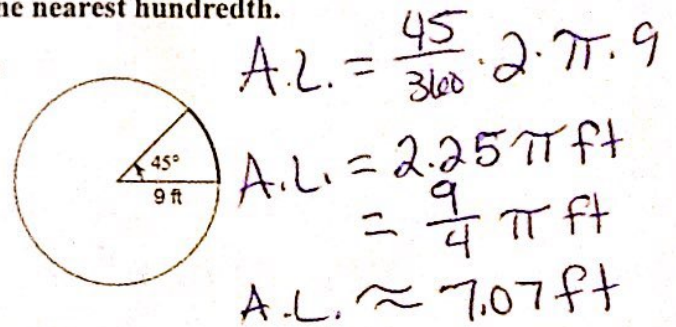 ne nearest hundredth.
A.L. = 45/360 · 2 · π · 9
45°
9 ft
A.L. = 2.25 π ft
= 9/4 π ft
A.L. ≈ 7.07 ft